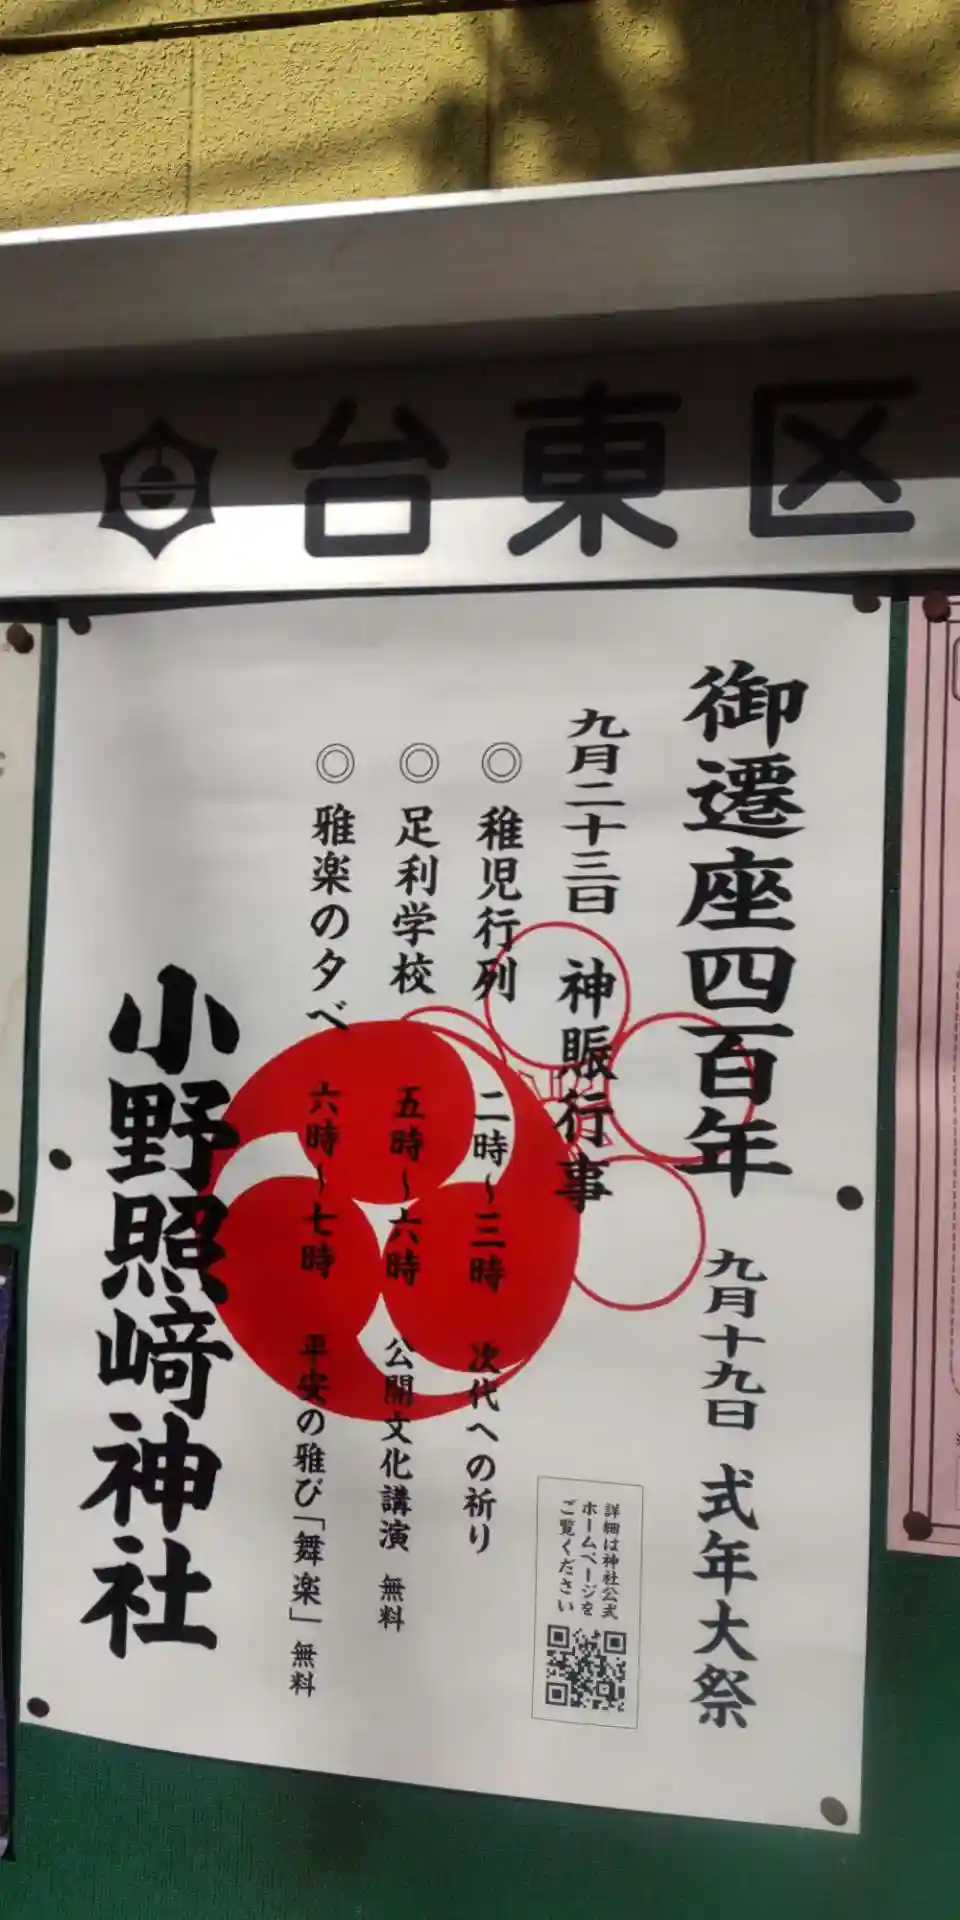 台東区
御遷座四百年 九月十九日 式年大祭
九月二十三日 神賑行事
◎ 稚児行列 二時～三時 次代への祈り
◎ 足利学校 五時～六時 公開文化講演 無料
◎ 雅楽の夕べ 六時～七時 平安の雅び「舞楽」 無料
小野照崎神社
詳細は神社公式
ホームページを
ご覧ください